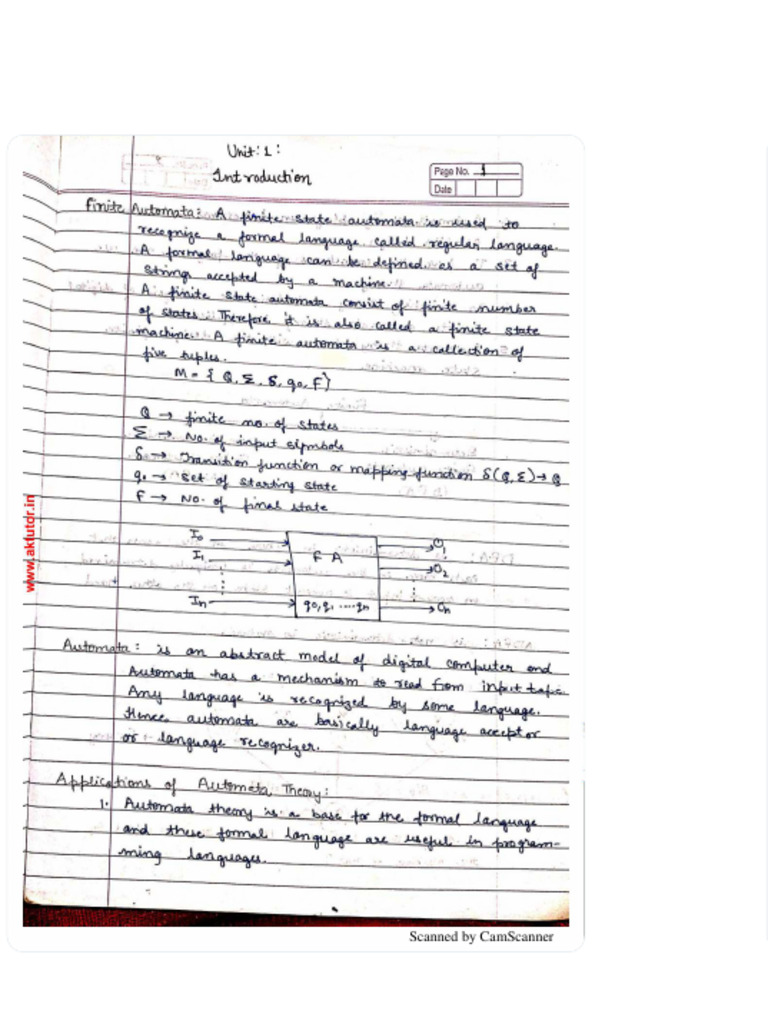 Unit: 1 :
Introduction
Page No. 1
Date
Finite Automata: A finite state automata is used to
recognize a formal language called regular language.
A formal language can be defined as a set of
strings accepted by a machine.
A finite state automata consist of finite number
of states. Therefore it is also called a finite state
machine. A finite automata is a collection of
five tuples.
M = { Q, Σ, δ, q0, F}
Q → finite no. of states
Σ → No. of input symbols
δ → Transition function or mapping function δ(Q, Σ)→ Q
q0 → Set of starting state
F → No. of final state
www.aktutor.in
I0
I1
In
F A
q0, q1 ....qn
O1
O2
On
Automata: is an abstract model of digital computer and
Automata has a mechanism to read from input tape.
Any language is recognized by some language.
Hence automata are basically language acceptor
or language recognizer.
Applications of Automata Theory:
1. Automata theory is a base for the formal language
and these formal language are useful in program-
ming languages.
Scanned by CamScanner